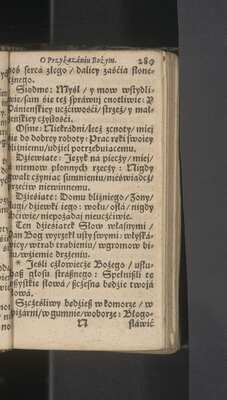 O Przykazaniu Bożym. 289
serca złego / dalicy zaścia słone-
cznego.
Siodme: Myśl / y mow wstydli-
wie/sam się też sprawuj cnotliwie: Y
Pánieńskiey uczciwości/ strzeż/ y mał-
żeńskiey czystości.
Osme: Niekradni/lecz cznoty/ miey
się do dobrey roboty: Prac ręki swoiey
bliźniemu/udziel potrzebuiącemu.
Dziewiate: Język na pieczy/ miey/
niemow płonnych rzeczy: Nigdy
gwałt czyniąc sumnieniu/nieświadcz/
przeciw niewinnemu.
Dziesiate: Domu bliźniego/Żony/
sługi/dziewki iego: wołu/osła/nigdy
chciwie/niepożadaj nieuczciwie.
Ten dziesiatek Słow własnymi/
Pan Bog wyrzekł usty swymi: wbłyska-
wicy/wtrab trabieniu/ wgromow bi-
ciu/wziemie drżeniu.
* Jeśli człowiecze Bożego / usłu-
chasz głosu strasznego: Spełnisz te
wszystkie słowa/ szczesna będzie twoja
głowa.
Szcześliwy będziesz wkomorze / w
spiżarni/w gumnie/woborze: Błogo-
N sławić